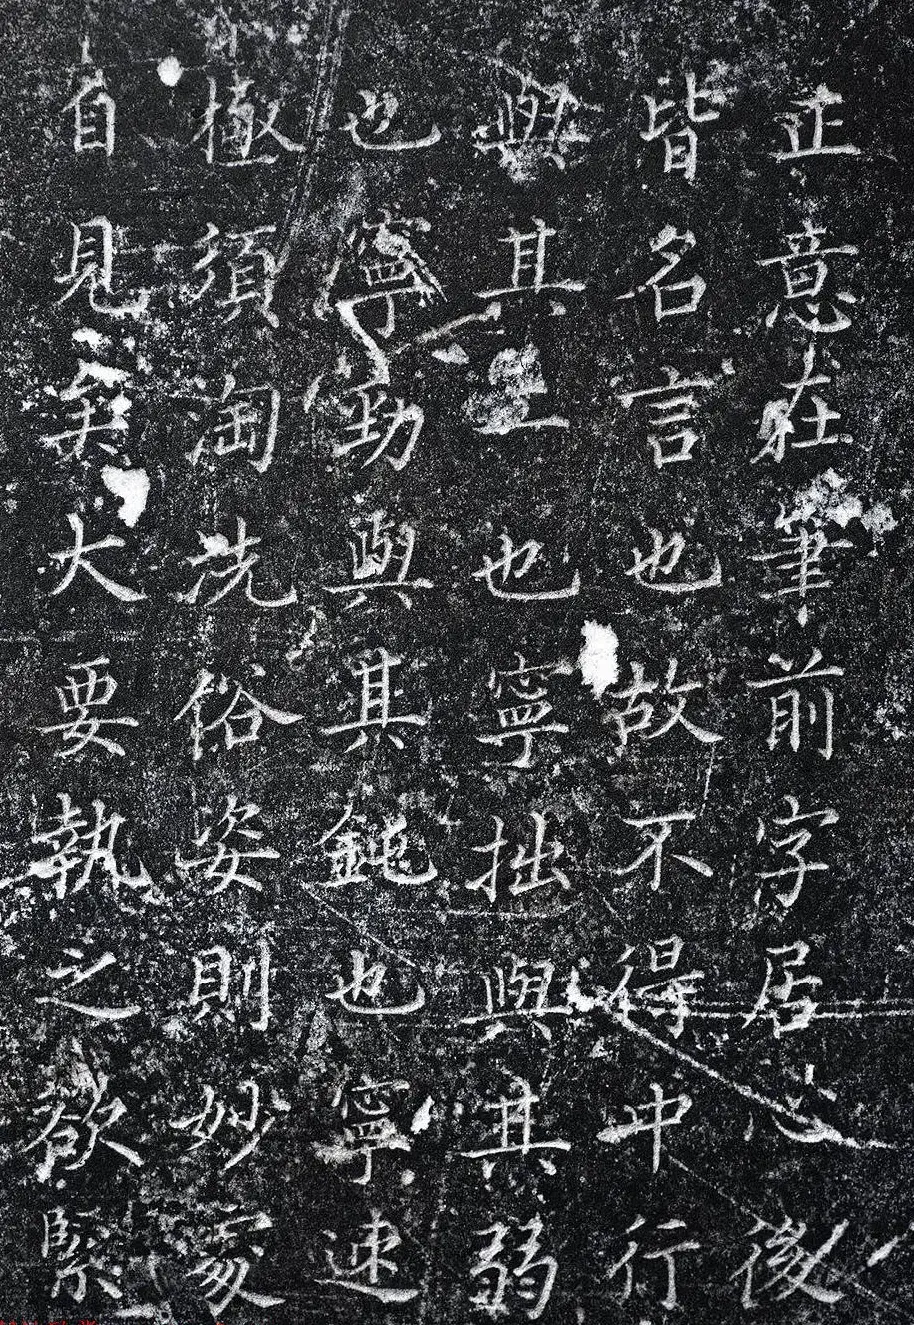 正意在筆前字居心後
皆名言也故不得中行
與其工也寧拙與其弱
也寧勁與其鈍也寧速
極須淘洗俗姿則妙處
自見矣大要執之欲緊